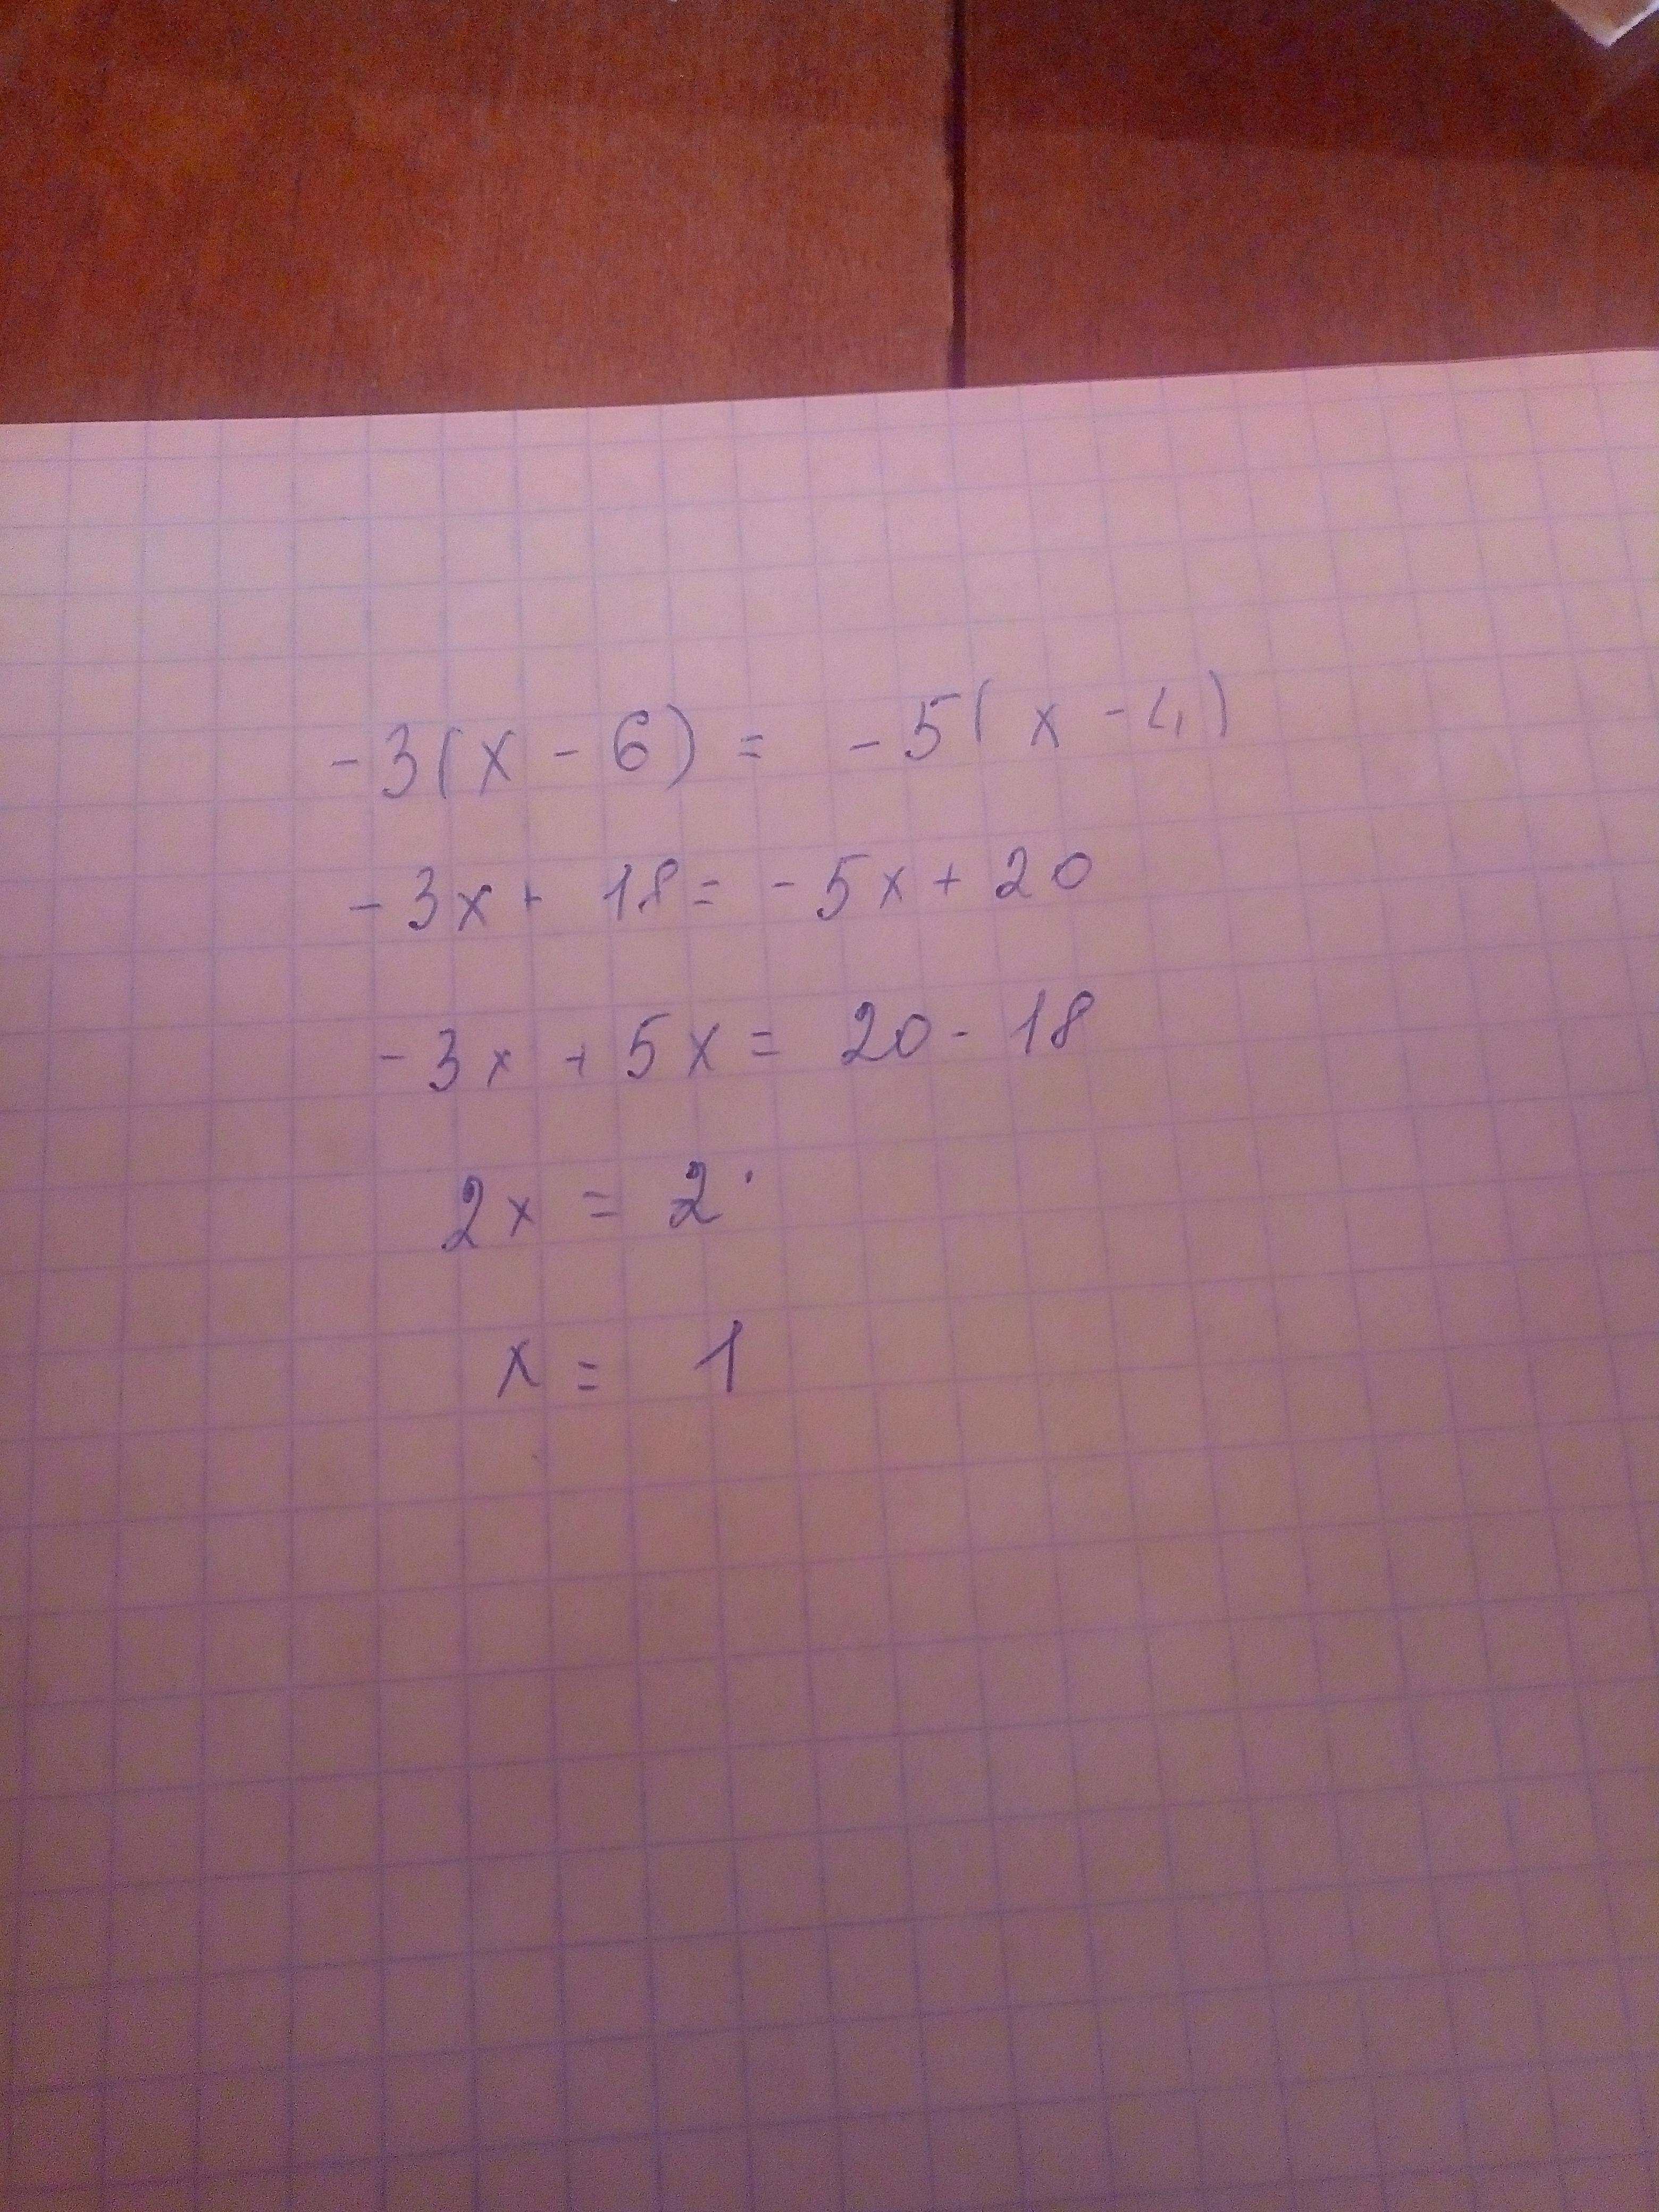 -3(x - 6) = -5(x - 4)
-3x + 18 = -5x + 20
-3x + 5x = 20 - 18
2x = 2
x = 1